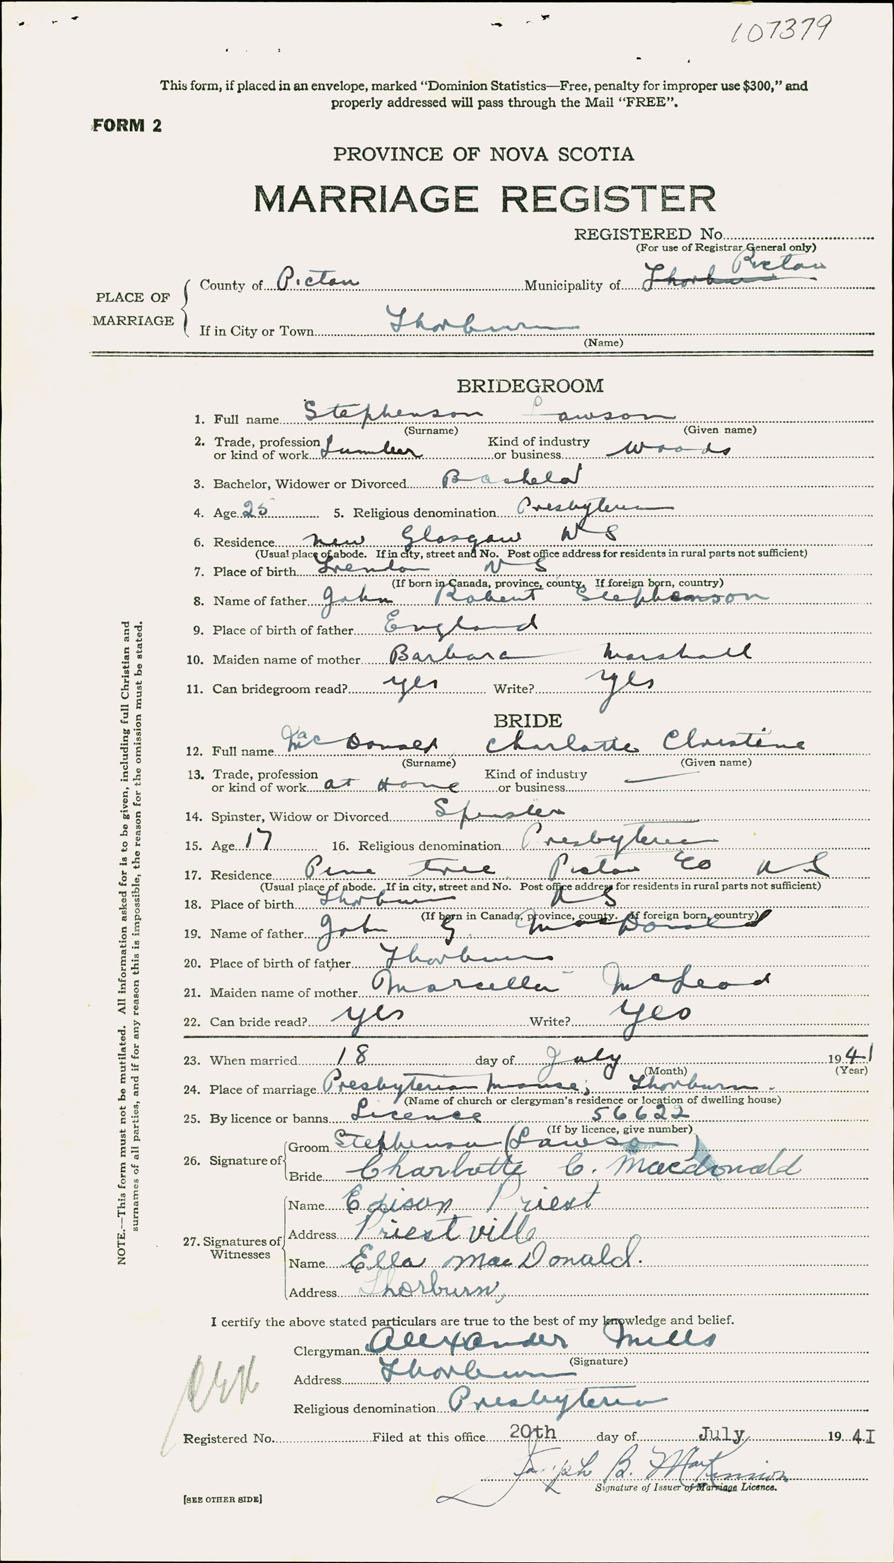 107379
This form, if placed in an envelope, marked “Dominion Statistics—Free, penalty for improper use $300,” and
properly addressed will pass through the Mail “FREE”.
FORM 2
PROVINCE OF NOVA SCOTIA
MARRIAGE REGISTER
REGISTERED No.
(For use of Registrar General only)
PLACE OF MARRIAGE
County of Pictou Municipality of Thorburn Pictou
If in City or Town Thorburn
(Name)
BRIDEGROOM
1. Full name Stephenson Lawson
(Surname) (Given name)
2. Trade, profession or kind of work Lumber Kind of industry or business Woods
3. Bachelor, Widower or Divorced Bachelor
4. Age 25 5. Religious denomination Presbyterian
6. Residence New Glasgow N S
(Usual place of abode. If in city, street and No. Post office address for residents in rural parts not sufficient)
7. Place of birth Trenton N S
(If born in Canada, province, county. If foreign born, country)
8. Name of father John Robert Stephenson
9. Place of birth of father England
10. Maiden name of mother Barbara Marshall
11. Can bridegroom read? yes Write? yes
BRIDE
12. Full name MacDonald Charlotte Christine
(Surname) (Given name)
13. Trade, profession or kind of work at Home Kind of industry or business —
14. Spinster, Widow or Divorced Spinster
15. Age 17 16. Religious denomination Presbyterian
17. Residence Pine tree Pictou Co N S
(Usual place of abode. If in city, street and No. Post office address for residents in rural parts not sufficient)
18. Place of birth Thorburn N S
(If born in Canada, province, county. If foreign born, country)
19. Name of father John G. MacDonald
20. Place of birth of father Thorburn
21. Maiden name of mother Marcella McLeod
22. Can bride read? yes Write? yes
23. When married 18 day of July 1941
(Month) (Year)
24. Place of marriage Presbyterian Manse, Thorburn.
(Name of church or clergyman's residence or location of dwelling house)
25. By licence or banns Licence 56622
(If by licence, give number)
26. Signature of
Groom Stephenson (Lawson)
Bride Charlotte C. Macdonald
27. Signatures of Witnesses
Name Edison Priest
Address Priestville
Name Ella MacDonald.
Address Thorburn,
I certify the above stated particulars are true to the best of my knowledge and belief.
Clergyman Alexander Mills
(Signature)
Address Thorburn
Religious denomination Presbyterian
Registered No. Filed at this office 20th day of July 1941
Joseph B. MacKinnon
Signature of Issuer of Marriage Licence.
[SEE OTHER SIDE]
NOTE.—This form must not be mutilated. All information asked for is to be given, including full Christian and
surnames of all parties, and if for any reason this is impossible, the reason for the omission must be stated.